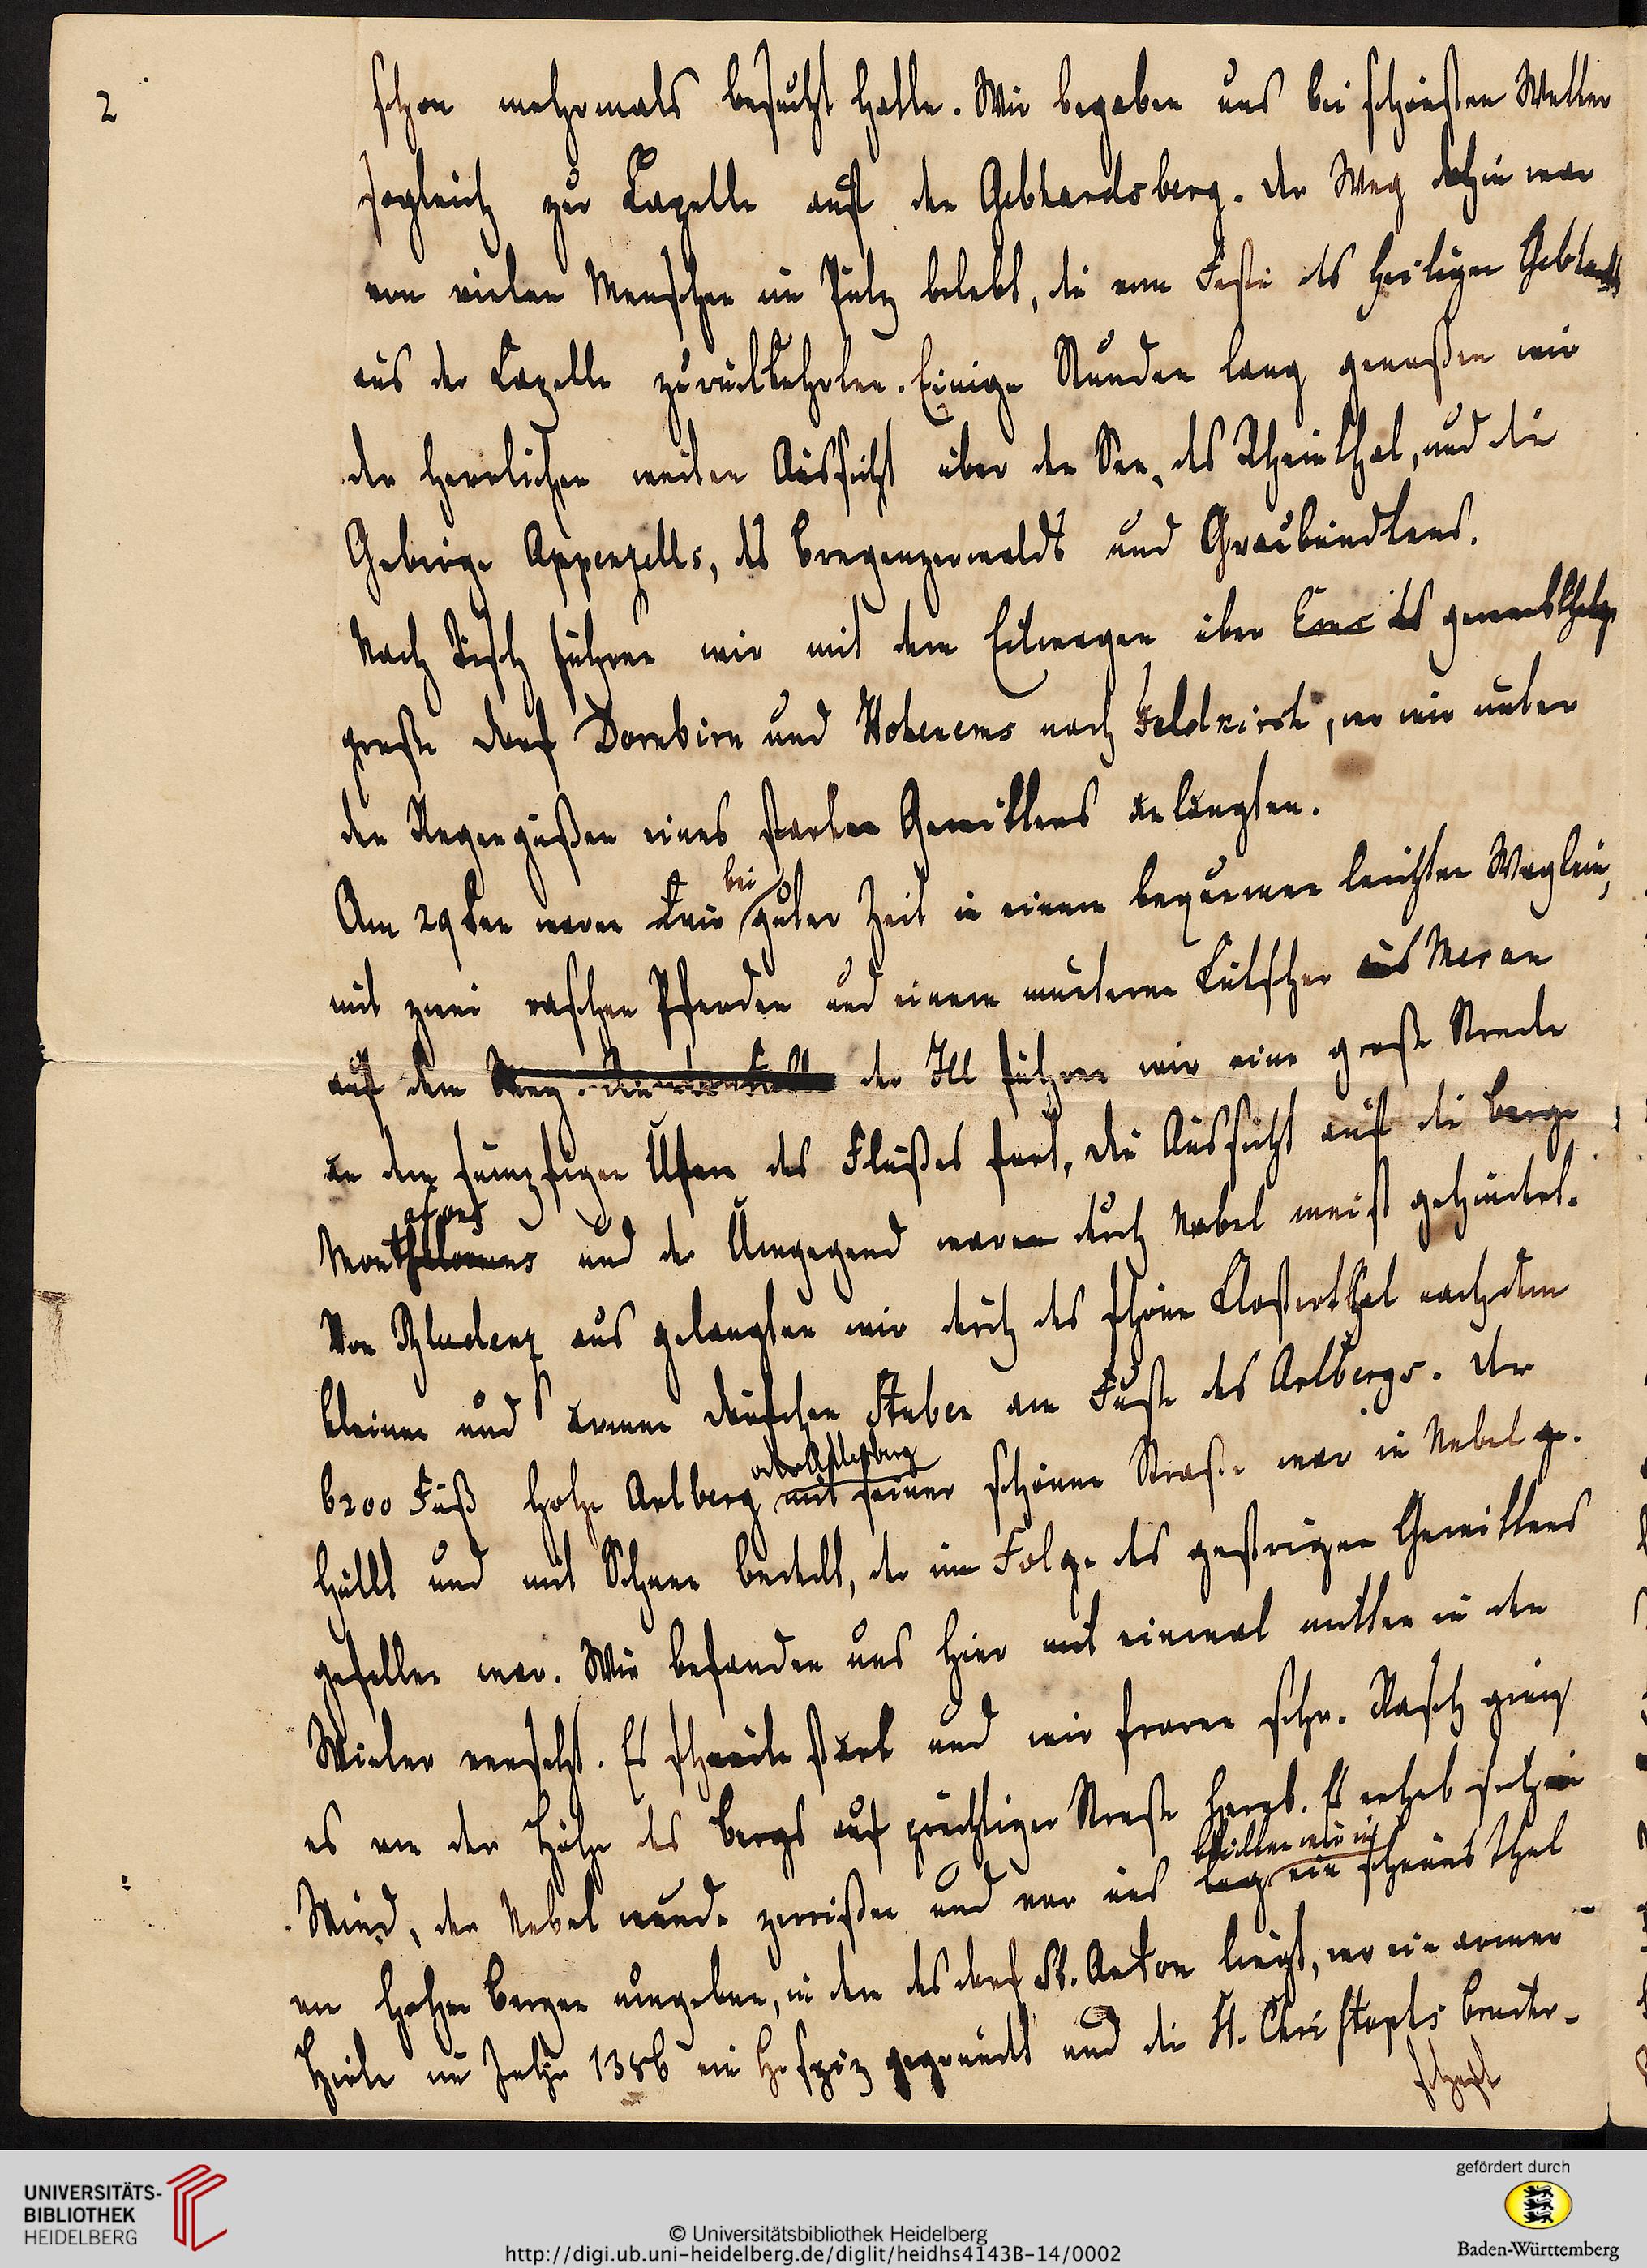 2
schon mehrmals besucht hatte. Wir begaben uns bei schönsten Wetter
sogleich zur Capelle auf den Gebhardsberg. Der Weg dahin war
von vielen Menschen im Putz belebt, die vom Feste des heiligen Gebhards
aus der Capelle zurückkehrten. Einige Stunden lang genoßen wir
der herrlichen weiten Aussicht über den See, das Rheinthal, und die
Gebirge Appenzells, des Bregenzerwalds und Graubündtens.
Nach Tisch fuhren wir mit dem Eilwagen über das gewerbthätige
große Dorf Dornbirn und Hohenems nach Feldkirch, wo wir unter
den Regengüßen eines starken Gewitters anlangten.
Am 29ten waren wir bei guter Zeit in einem bequemen leichten Wäglein,
mit zwei raschen Pferden und einem munteren Kutscher aus Meran
auf dem Weg. der Ill fuhren wir eine große Strecke
an dem sumpfigen Ufer des Flußes fort, die Aussicht auf die Berge
Montafons und der Umgegend waren durch Nebel meist gehindert.
Von Bludenz aus gelangten wir durch das schöne Klosterthal nach dem
kleinen und armen Dörfchen Stuben am Fuße des Arlbergs. Der
6200 Fuß hohe Arlberg oder Adlersberg mit seiner schönen Straße war in Nebel ge-
hüllt und mit Schnee bedeckt, der in Folge des gestrigen Gewitters
gefallen war. Wir befanden uns hier mit einemal mitten in den
Winter versetzt. Es schneite stark und wir froren sehr. Rasch ging
es von der Höhe des Bergs auf prächtiger Straße herab. Es erhob sich ein
Wind, der Nebel wurde zerrißen und vor uns lag ein blickten wir in schönes Thal
von hohen Bergen umgeben, in dem das Dorf St. Anton liegt, wo ein armer
Hirte im Jahr 1386 ein Hospiz gegründet und die St. Christophs Bruder-
schaft
UNIVERSITÄTS-
BIBLIOTHEK
HEIDELBERG
© Universitätsbibliothek Heidelberg
http://digi.ub.uni-heidelberg.de/diglit/heidhs4143B-14/0002
gefördert durch
Baden-Württemberg